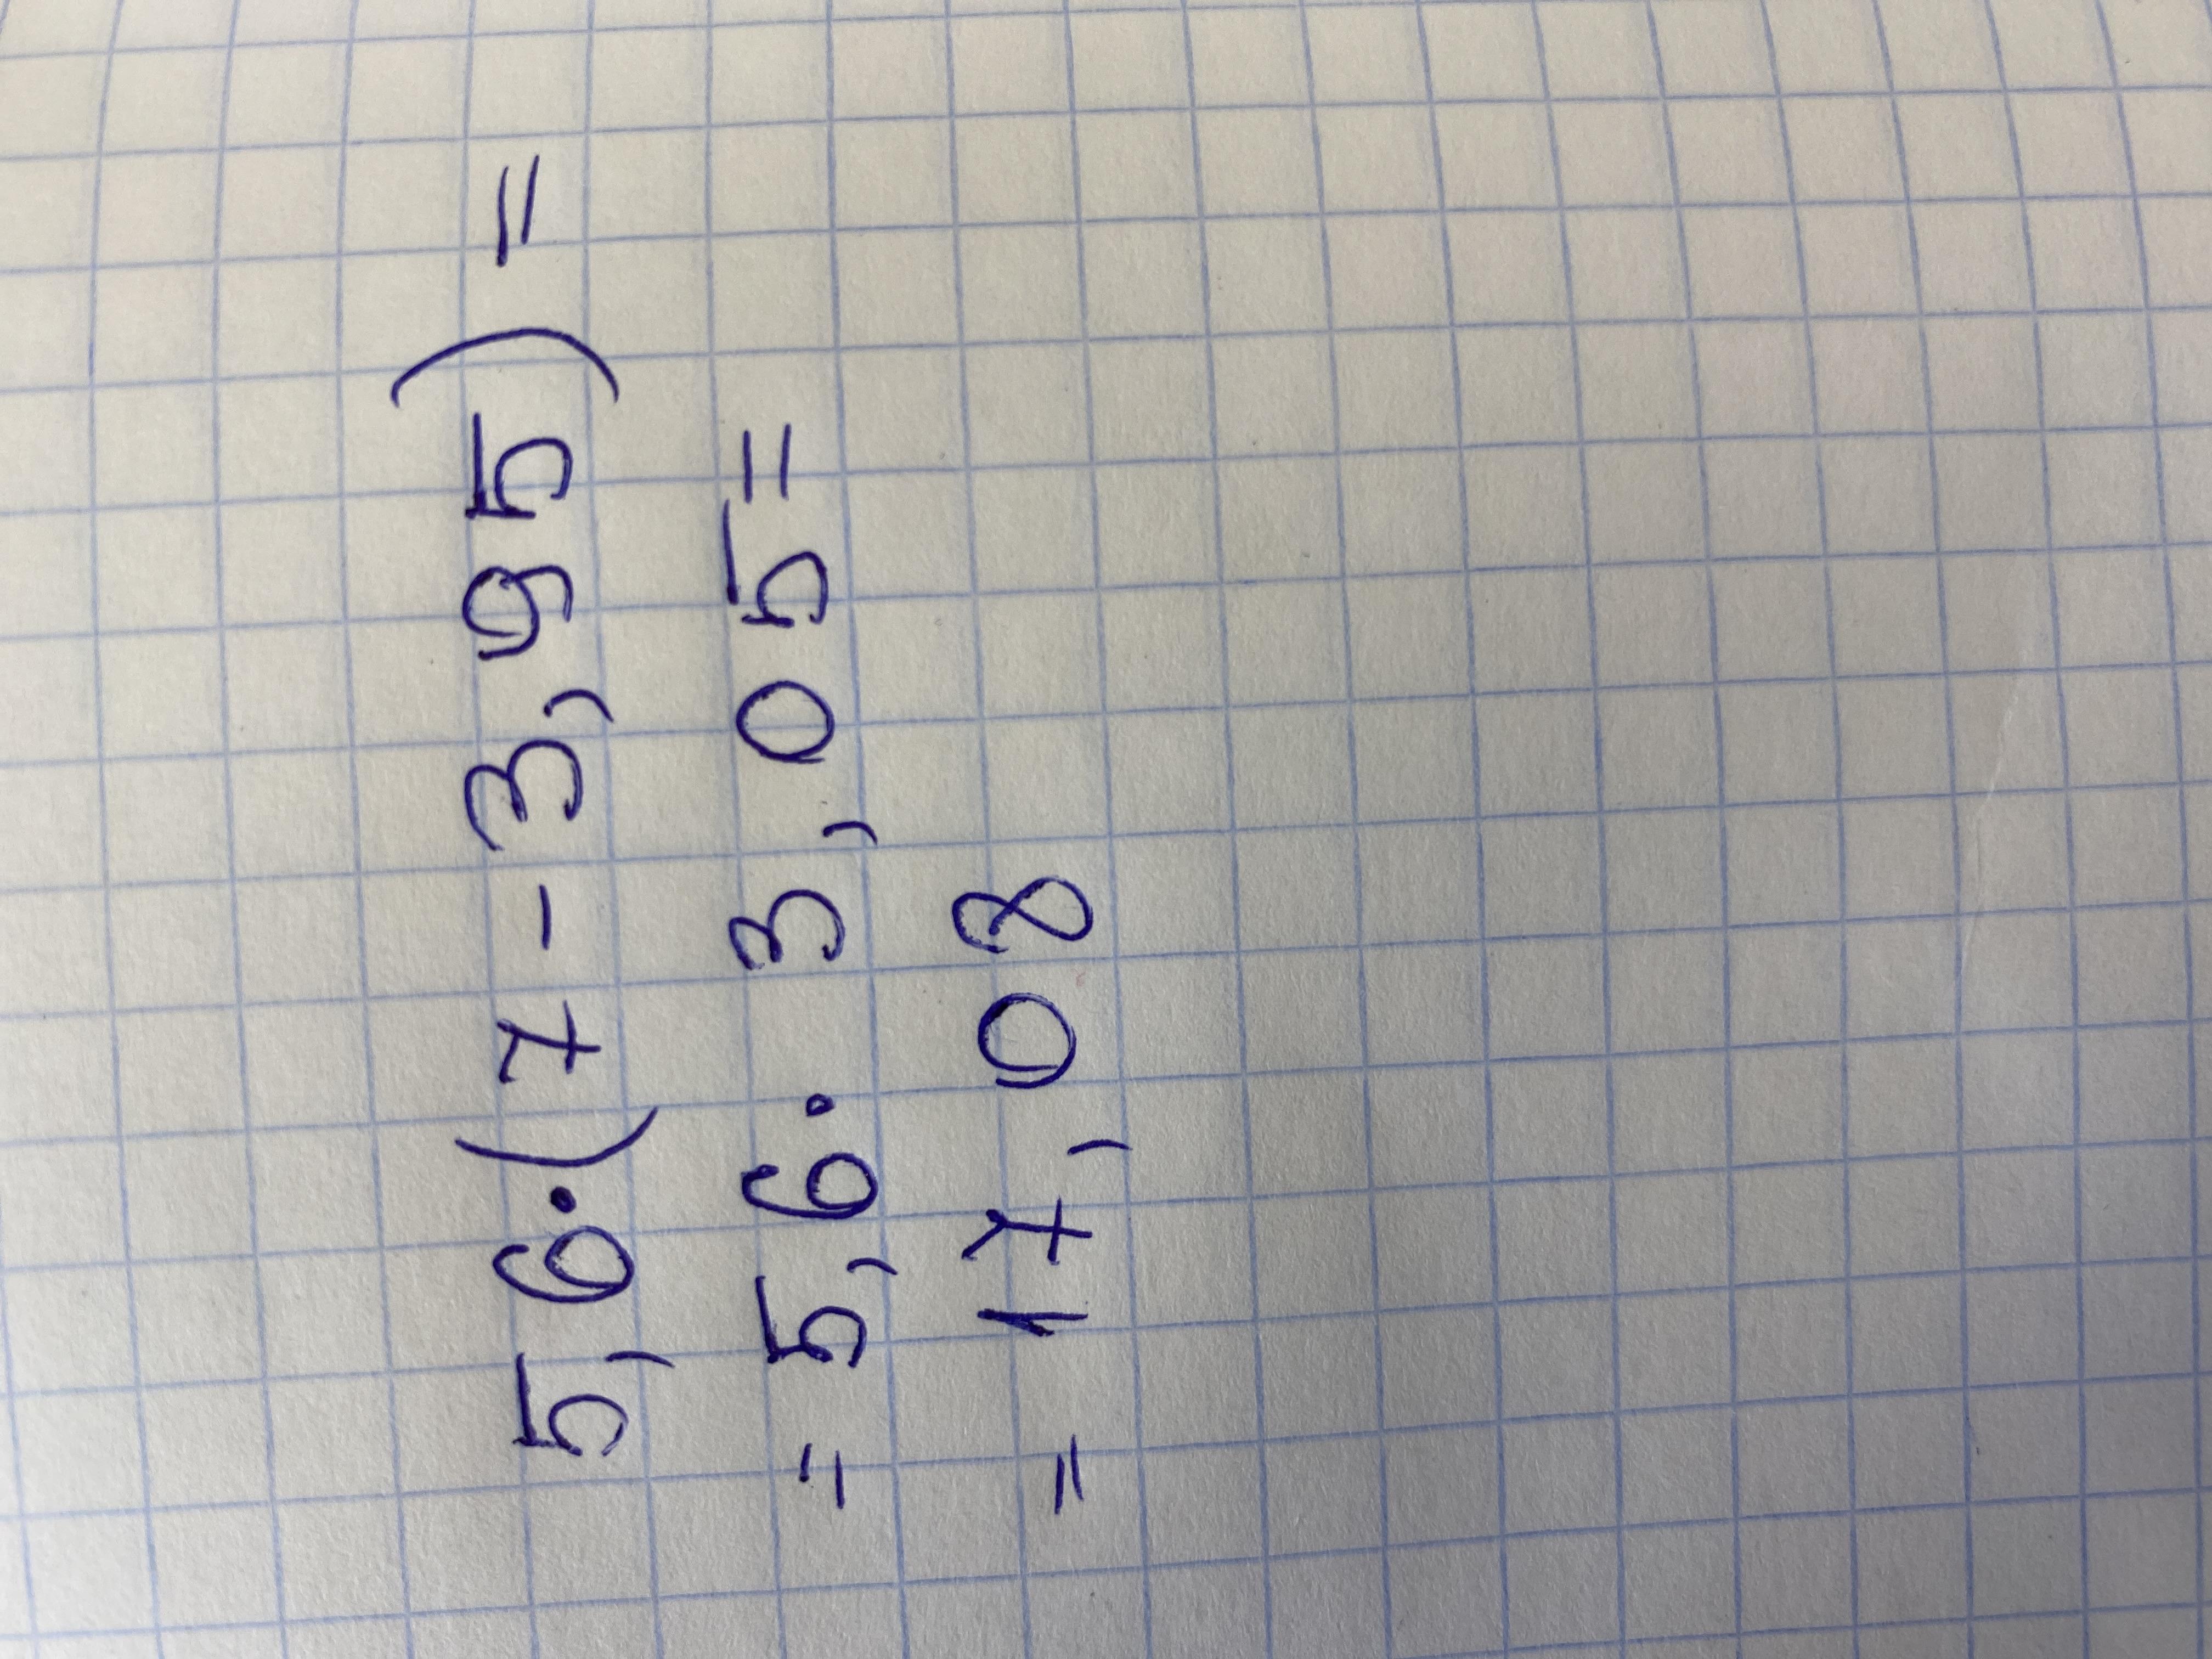 5,6·(7-3,95)=
=5,6·3,05=
=17,08